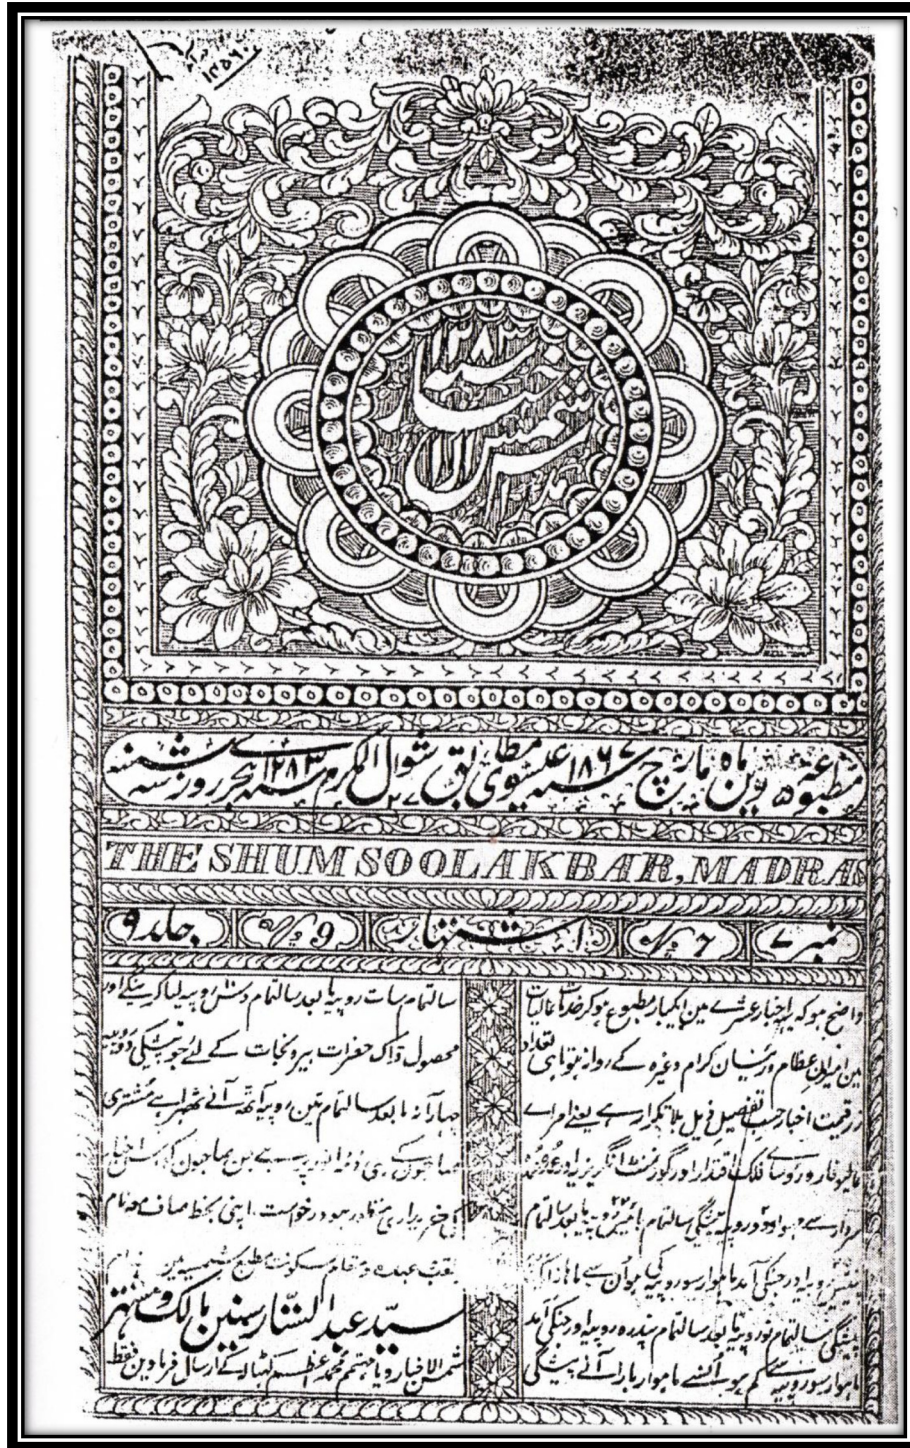 ۱۲۵۹۰
۱۲۸۳
سنہ
شمس الاخبار
مدراس
مطبوعہ ۵ وین ماہ مارچ سنہ ۱۸۶۷ عیسوی مطابق ۲۷ شوال المکرم سنہ ۱۲۸۳ ہجری روز سہ شنبہ
THE SHUMSOOLAKBAR, MADRAS
نمبر ۷
6
اشتہار
9
جلد ۹
واضح ہو کہ یہہ اخبار عشرے مین ایکبار مطبوع ہو کر خدمات عالیات
مین امیران عظام و رئیسان کرام وغیرہ کے روانہ ہوتا ہی تعداد
زر قیمت اخبار حسب تفصیل ذیل بلا تکرار ہے یعنے امراے
عالیوقار و روساے فلک اقتدار اور گورنمنٹ انگریز اور
روپیہ پیشگی سالتمام بائیس ۲۲ روپیہ یا بعد سالتمام
روپیہ اور جنکی آمد ماہوار سو روپیہ کی ہو اُن سے
پیشگی سالتمام نو روپیہ یا بعد سالتمام پندرہ روپیہ اور جنکی آمد
ماہوار سو روپیہ سے کم ہو اُنسے ماہوار بارا آنے پیشگی
سالتمام سات روپیہ یا بعد سالتمام دس روپیہ لیا کرینگے اور
محصول ڈاک حضرات بیرونجات کے لئے جو پیشگی دو روپیہ
چہار آنہ یا بعد سالتمام تین روپیہ آٹھہ آنے ٹھہرا ہے مشتری
صاحبون کے ذمہ پر ہے جن صاحبون کو اس اخبار
کی خریداری منظور ہو درخواست اپنی بخط صاف معہ نام
لقب عہدہ و مقام سکونت مطبع شمسیہ مین
سید عبد الستار سنین مالک و مشتہر
شمس الاخبار و یا مہتمم محمد اعظم کے ارسال فرماوین فقط